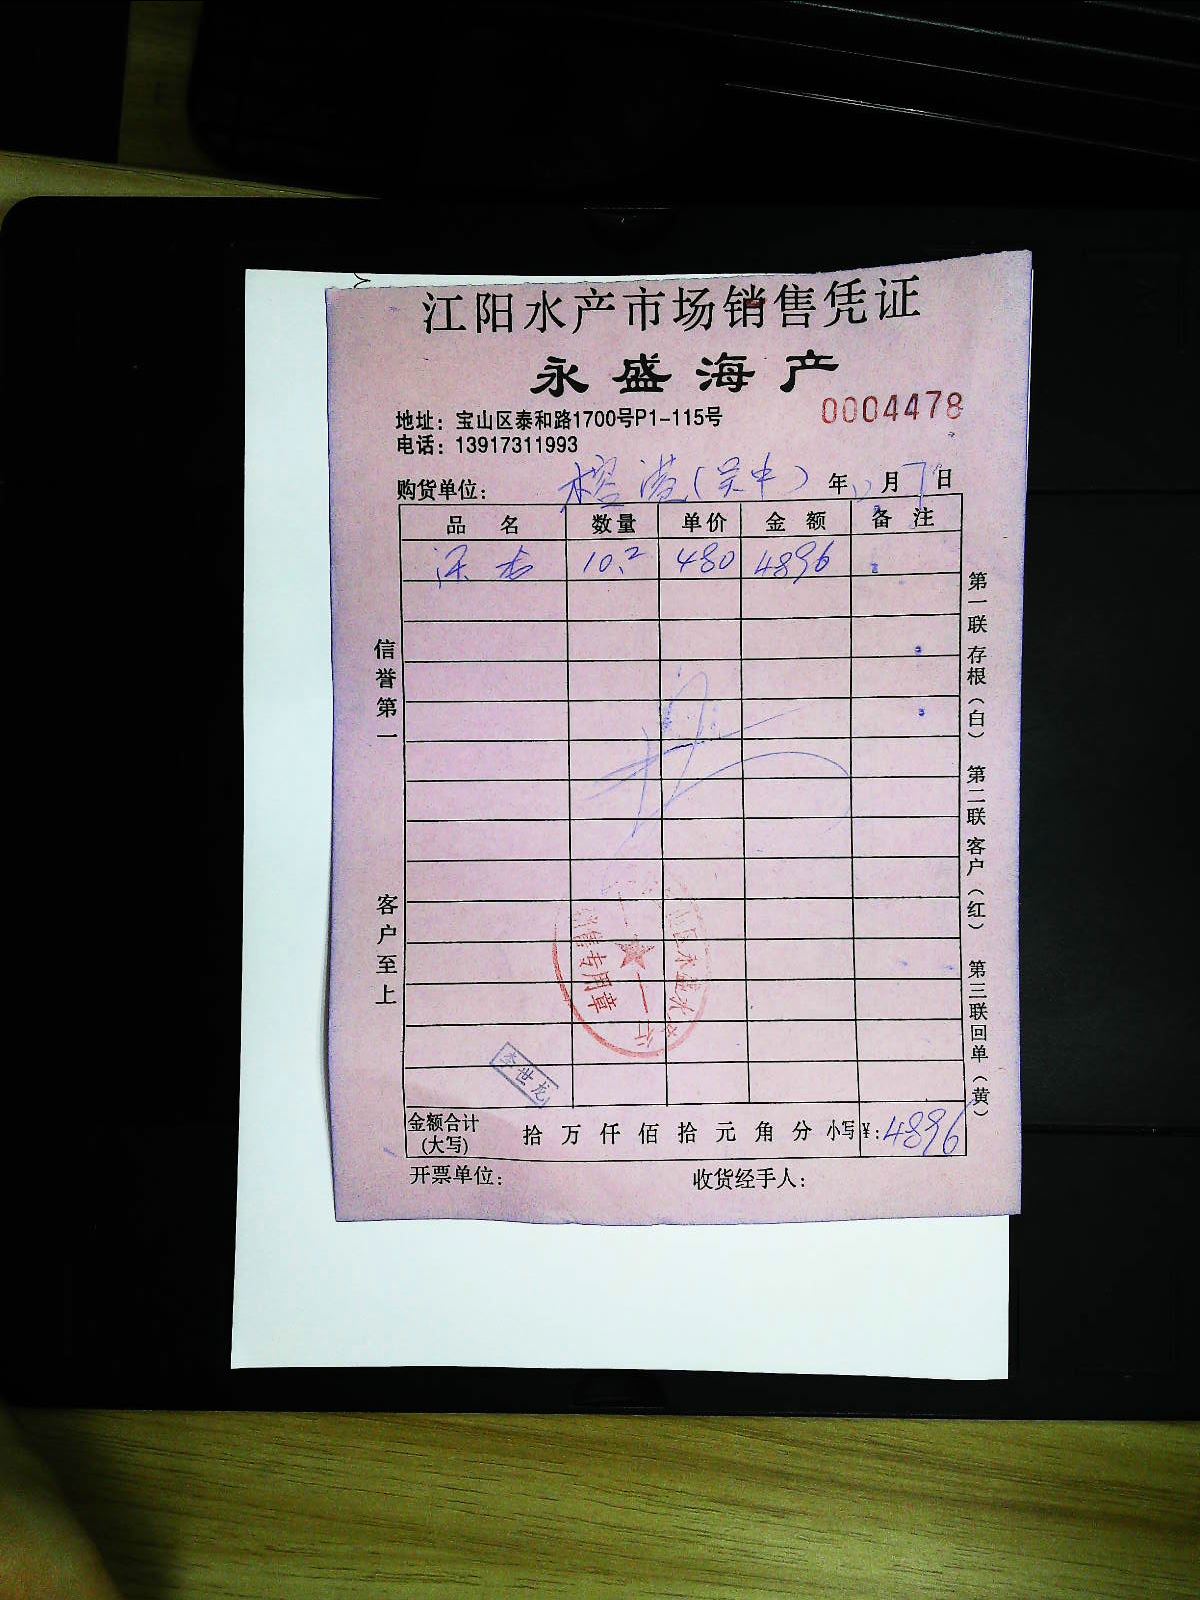 江阳水产市场销售凭证
永盛海产
0004478
地址：宝山区泰和路1700号P1-115号
电话：13917311993
购货单位：榕港（吴中） 年12月7日
品名 数量 单价 金额 备注
10.2 480 4896
信誉第一
客户至上
第一联 存根（白） 第二联 客户（红） 第三联 回单（黄）
销售专用章
山区永盛水产行
李世龙
金额合计
(大写) 拾 万 仟 佰 拾 元 角 分 小写¥：4896
开票单位： 收货经手人：